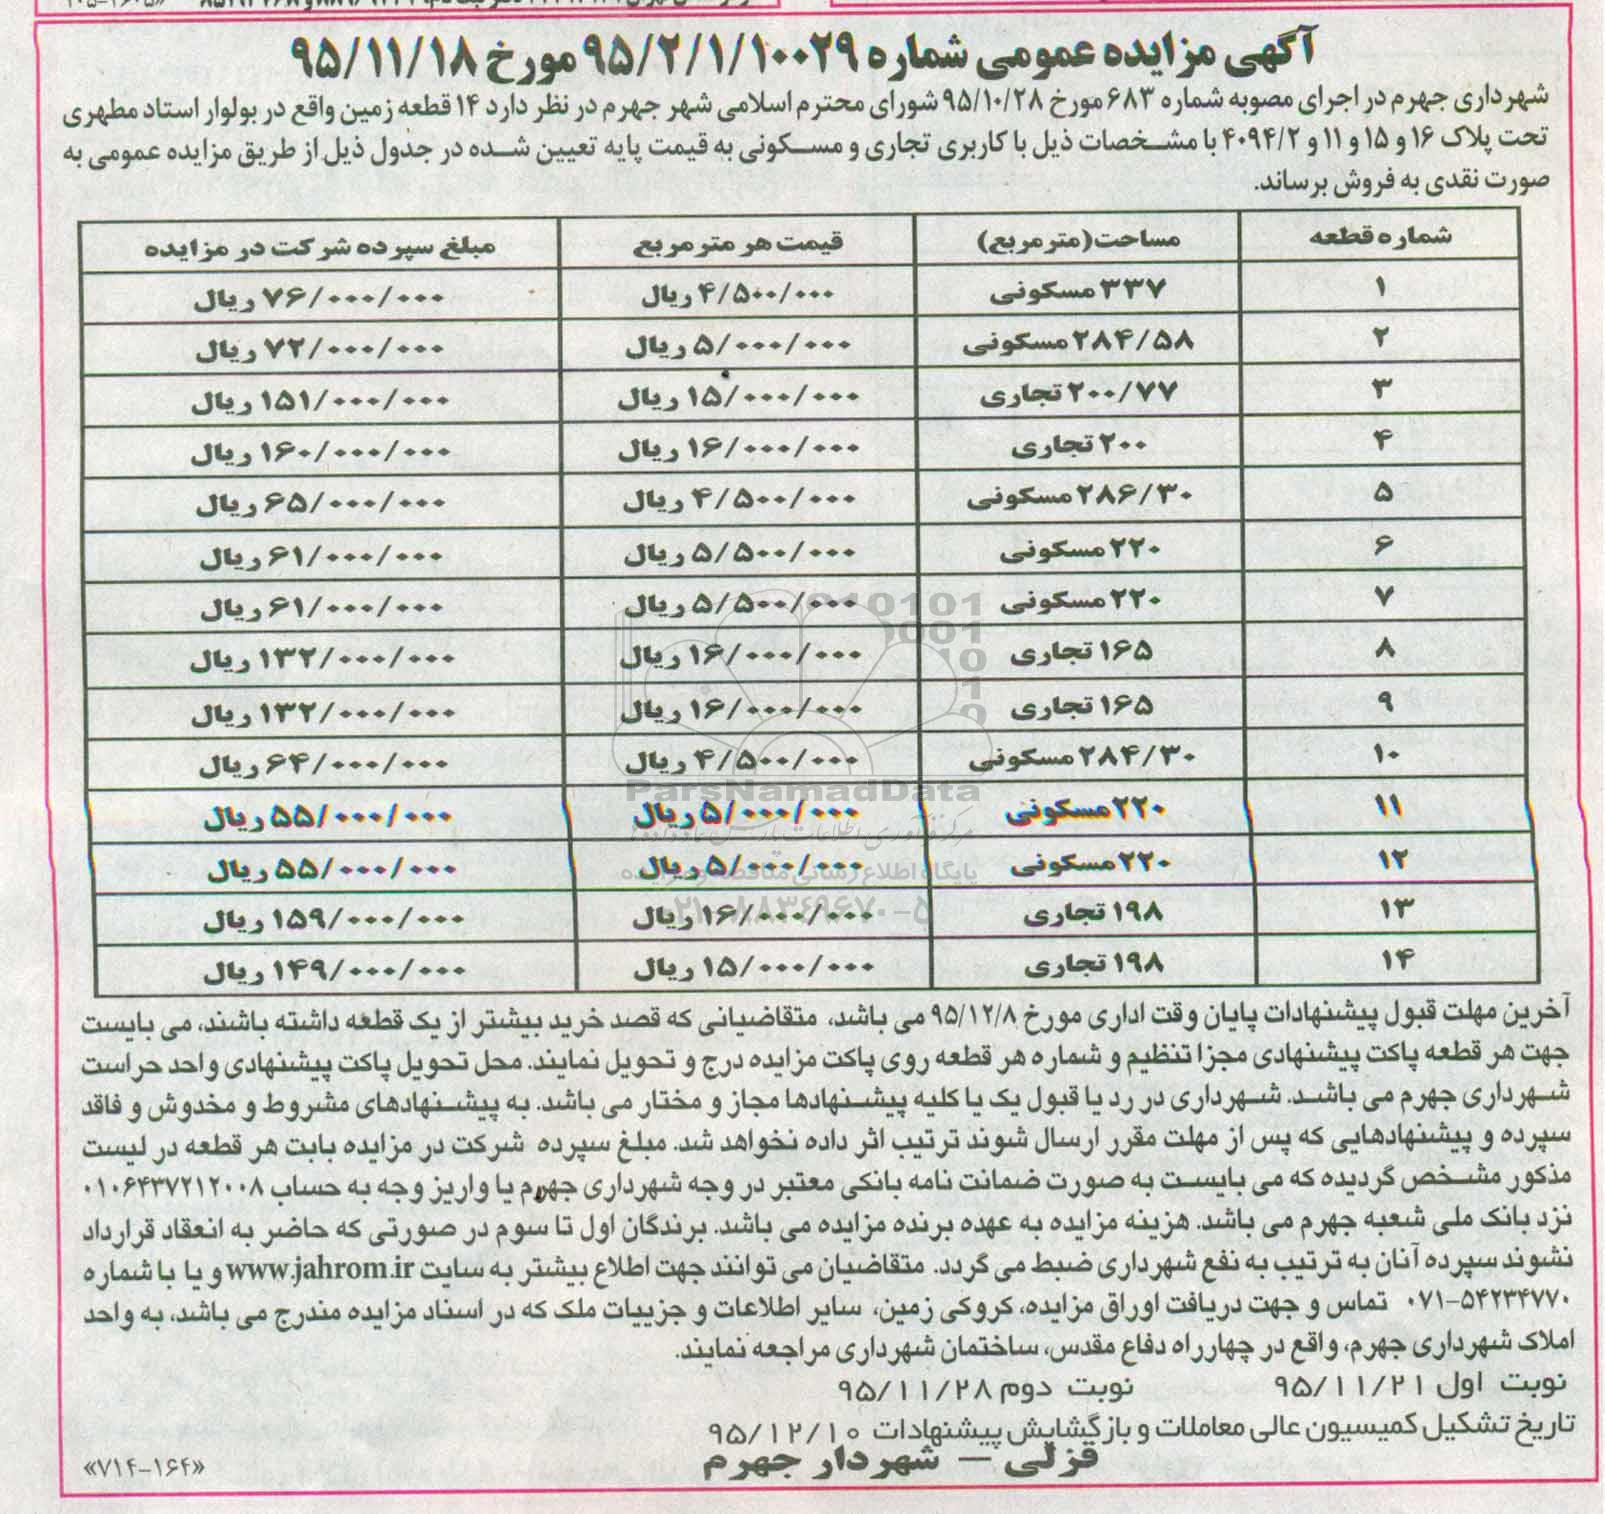 آگهی مزایده عمومی شماره ۹۵/۲/۱/۱۰۰۲۹ مورخ ۹۵/۱۱/۱۸
شهرداری جهرم در اجرای مصوبه شماره ۶۸۳ مورخ ۹۵/۱۰/۲۸ شورای محترم اسلامی شهر جهرم در نظر دارد ۱۴ قطعه زمین واقع در بولوار استاد مطهری
تحت پلاک ۱۶ و ۱۵ و ۱۱ و ۴۰۹۴/۲ با مشخصات ذیل با کاربری تجاری و مسکونی به قیمت پایه تعیین شده در جدول ذیل از طریق مزایده عمومی به
صورت نقدی به فروش برساند.
شماره قطعه مساحت (مترمربع) قیمت هر مترمربع مبلغ سپرده شرکت در مزایده
۱ ۳۳۷ مسکونی ۴/۵۰۰/۰۰۰ ریال ۷۶/۰۰۰/۰۰۰ ریال
۲ ۲۸۴/۵۸ مسکونی ۵/۰۰۰/۰۰۰ ریال ۷۲/۰۰۰/۰۰۰ ریال
۳ ۲۰۰/۷۷ تجاری ۱۵/۰۰۰/۰۰۰ ریال ۱۵۱/۰۰۰/۰۰۰ ریال
۴ ۲۰۰ تجاری ۱۶/۰۰۰/۰۰۰ ریال ۱۶۰/۰۰۰/۰۰۰ ریال
۵ ۲۸۶/۳۰ مسکونی ۴/۵۰۰/۰۰۰ ریال ۶۵/۰۰۰/۰۰۰ ریال
۶ ۲۲۰ مسکونی ۵/۵۰۰/۰۰۰ ریال ۶۱/۰۰۰/۰۰۰ ریال
۷ ۲۲۰ مسکونی ۵/۵۰۰/۰۰۰ ریال ۶۱/۰۰۰/۰۰۰ ریال
۸ ۱۶۵ تجاری ۱۶/۰۰۰/۰۰۰ ریال ۱۳۲/۰۰۰/۰۰۰ ریال
۹ ۱۶۵ تجاری ۱۶/۰۰۰/۰۰۰ ریال ۱۳۲/۰۰۰/۰۰۰ ریال
۱۰ ۲۸۴/۳۰ مسکونی ۴/۵۰۰/۰۰۰ ریال ۶۴/۰۰۰/۰۰۰ ریال
۱۱ ۲۲۰ مسکونی ۵/۰۰۰/۰۰۰ ریال ۵۵/۰۰۰/۰۰۰ ریال
۱۲ ۲۲۰ مسکونی ۵/۰۰۰/۰۰۰ ریال ۵۵/۰۰۰/۰۰۰ ریال
۱۳ ۱۹۸ تجاری ۱۶/۰۰۰/۰۰۰ ریال ۱۵۹/۰۰۰/۰۰۰ ریال
۱۴ ۱۹۸ تجاری ۱۵/۰۰۰/۰۰۰ ریال ۱۴۹/۰۰۰/۰۰۰ ریال
ParsNamadData
پایگاه اطلاع رسانی مناقصه و مزایده
آخرین مهلت قبول پیشنهادات پایان وقت اداری مورخ ۹۵/۱۲/۸ می باشد، متقاضیانی که قصد خرید بیشتر از یک قطعه داشته باشند، می بایست
جهت هر قطعه پاکت پیشنهادی مجزا تنظیم و شماره هر قطعه روی پاکت مزایده درج و تحویل نمایند. محل تحویل پاکت پیشنهادی واحد حراست
شهرداری جهرم می باشد. شهرداری در رد یا قبول یک یا کلیه پیشنهادها مجاز و مختار می باشد. به پیشنهادهای مشروط و مخدوش و فاقد
سپرده و پیشنهادهایی که پس از مهلت مقرر ارسال شوند ترتیب اثر داده نخواهد شد. مبلغ سپرده شرکت در مزایده بابت هر قطعه در لیست
مذکور مشخص گردیده که می بایست به صورت ضمانت نامه بانکی معتبر در وجه شهرداری جهرم یا واریز وجه به حساب ۰۱۰۶۴۳۷۲۱۲۰۰۸
نزد بانک ملی شعبه جهرم می باشد. هزینه مزایده به عهده برنده مزایده می باشد. برندگان اول تا سوم در صورتی که حاضر به انعقاد قرارداد
نشوند سپرده آنان به ترتیب به نفع شهرداری ضبط می گردد. متقاضیان می توانند جهت اطلاع بیشتر به سایت www.jahrom.ir و یا با شماره
۰۷۱-۵۴۲۳۴۷۷۰ تماس و جهت دریافت اوراق مزایده، کروکی زمین، سایر اطلاعات و جزییات ملک که در اسناد مزایده مندرج می باشد، به واحد
املاک شهرداری جهرم، واقع در چهارراه دفاع مقدس، ساختمان شهرداری مراجعه نمایند.
نوبت اول ۹۵/۱۱/۲۱ نوبت دوم ۹۵/۱۱/۲۸
تاریخ تشکیل کمیسیون عالی معاملات و بازگشایش پیشنهادات ۹۵/۱۲/۱۰
قزلی – شهردار جهرم
«۷۱۴-۱۶۴»